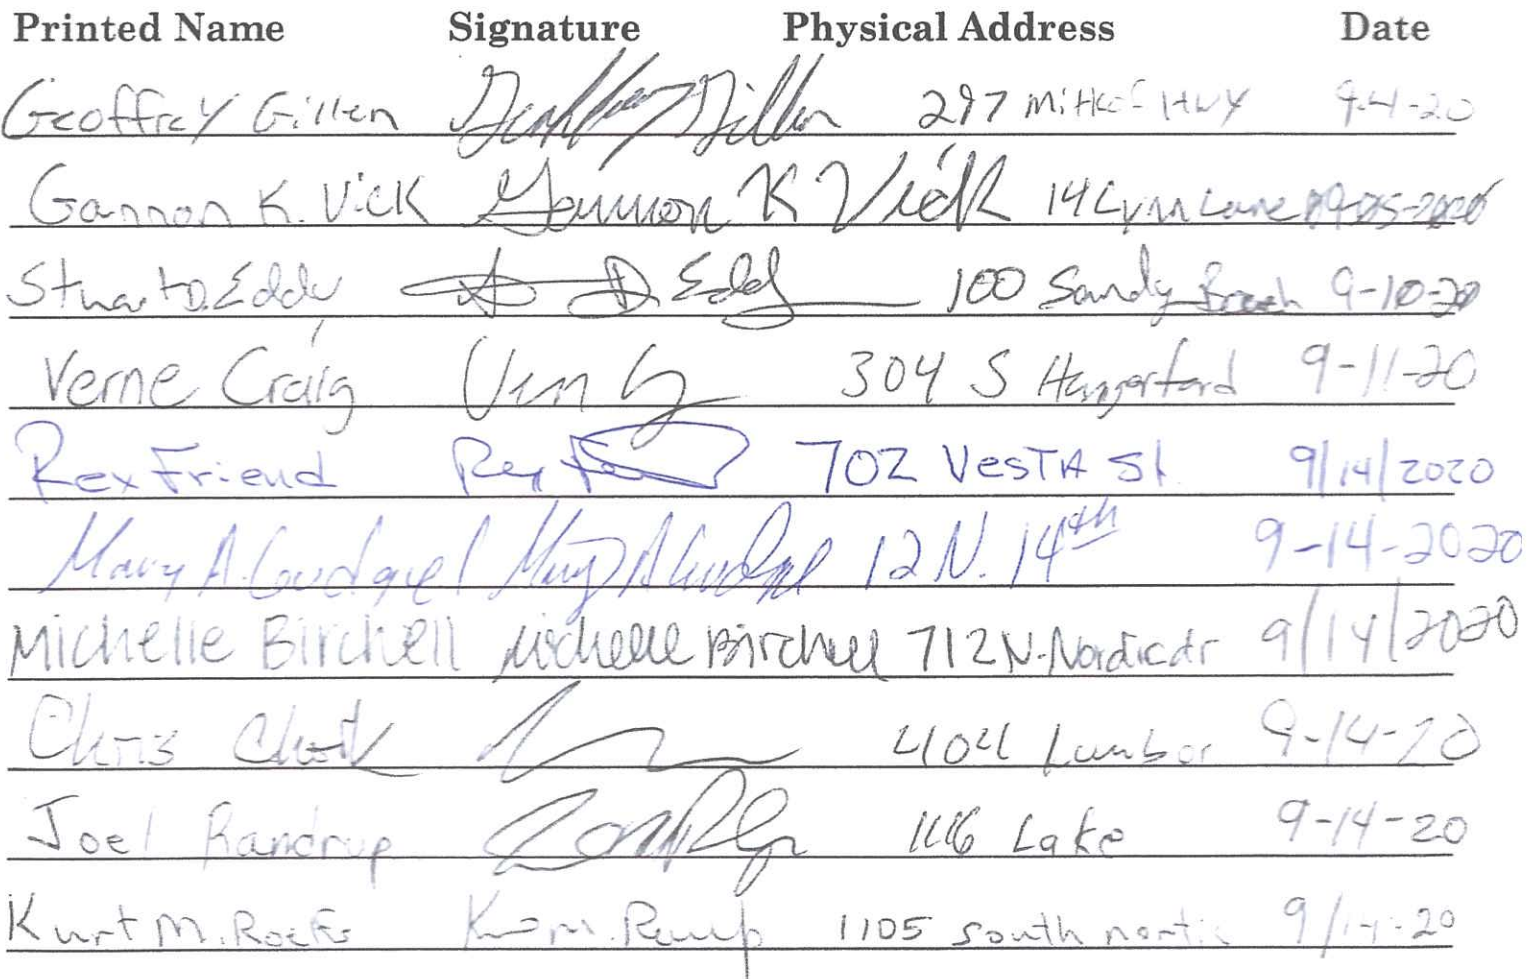 Printed Name Signature Physical Address Date
Geoffrey Gillen Geoffrey Gillen 297 Mitkof HWY 9-4-20
Gannon K. Vick Gannon K Vick 14 Lynn Lane 09-05-2020
Stuart D. Eddy D. Eddy 100 Sandy Beach 9-10-20
Verne Craig 304 S Hungerford 9-11-20
Rex Friend Rex 702 VesTA St. 9/14/2020
Mary A. Mary A 12 N. 14th 9-14-2020
Michelle Birchell Michelle Birchell 712 N. Nordic dr 9/14/2020
Chris 404 Lumber 9-14-20
Joel Randrup Lake 9-14-20
Kurt M. 1105 south 9/14-20